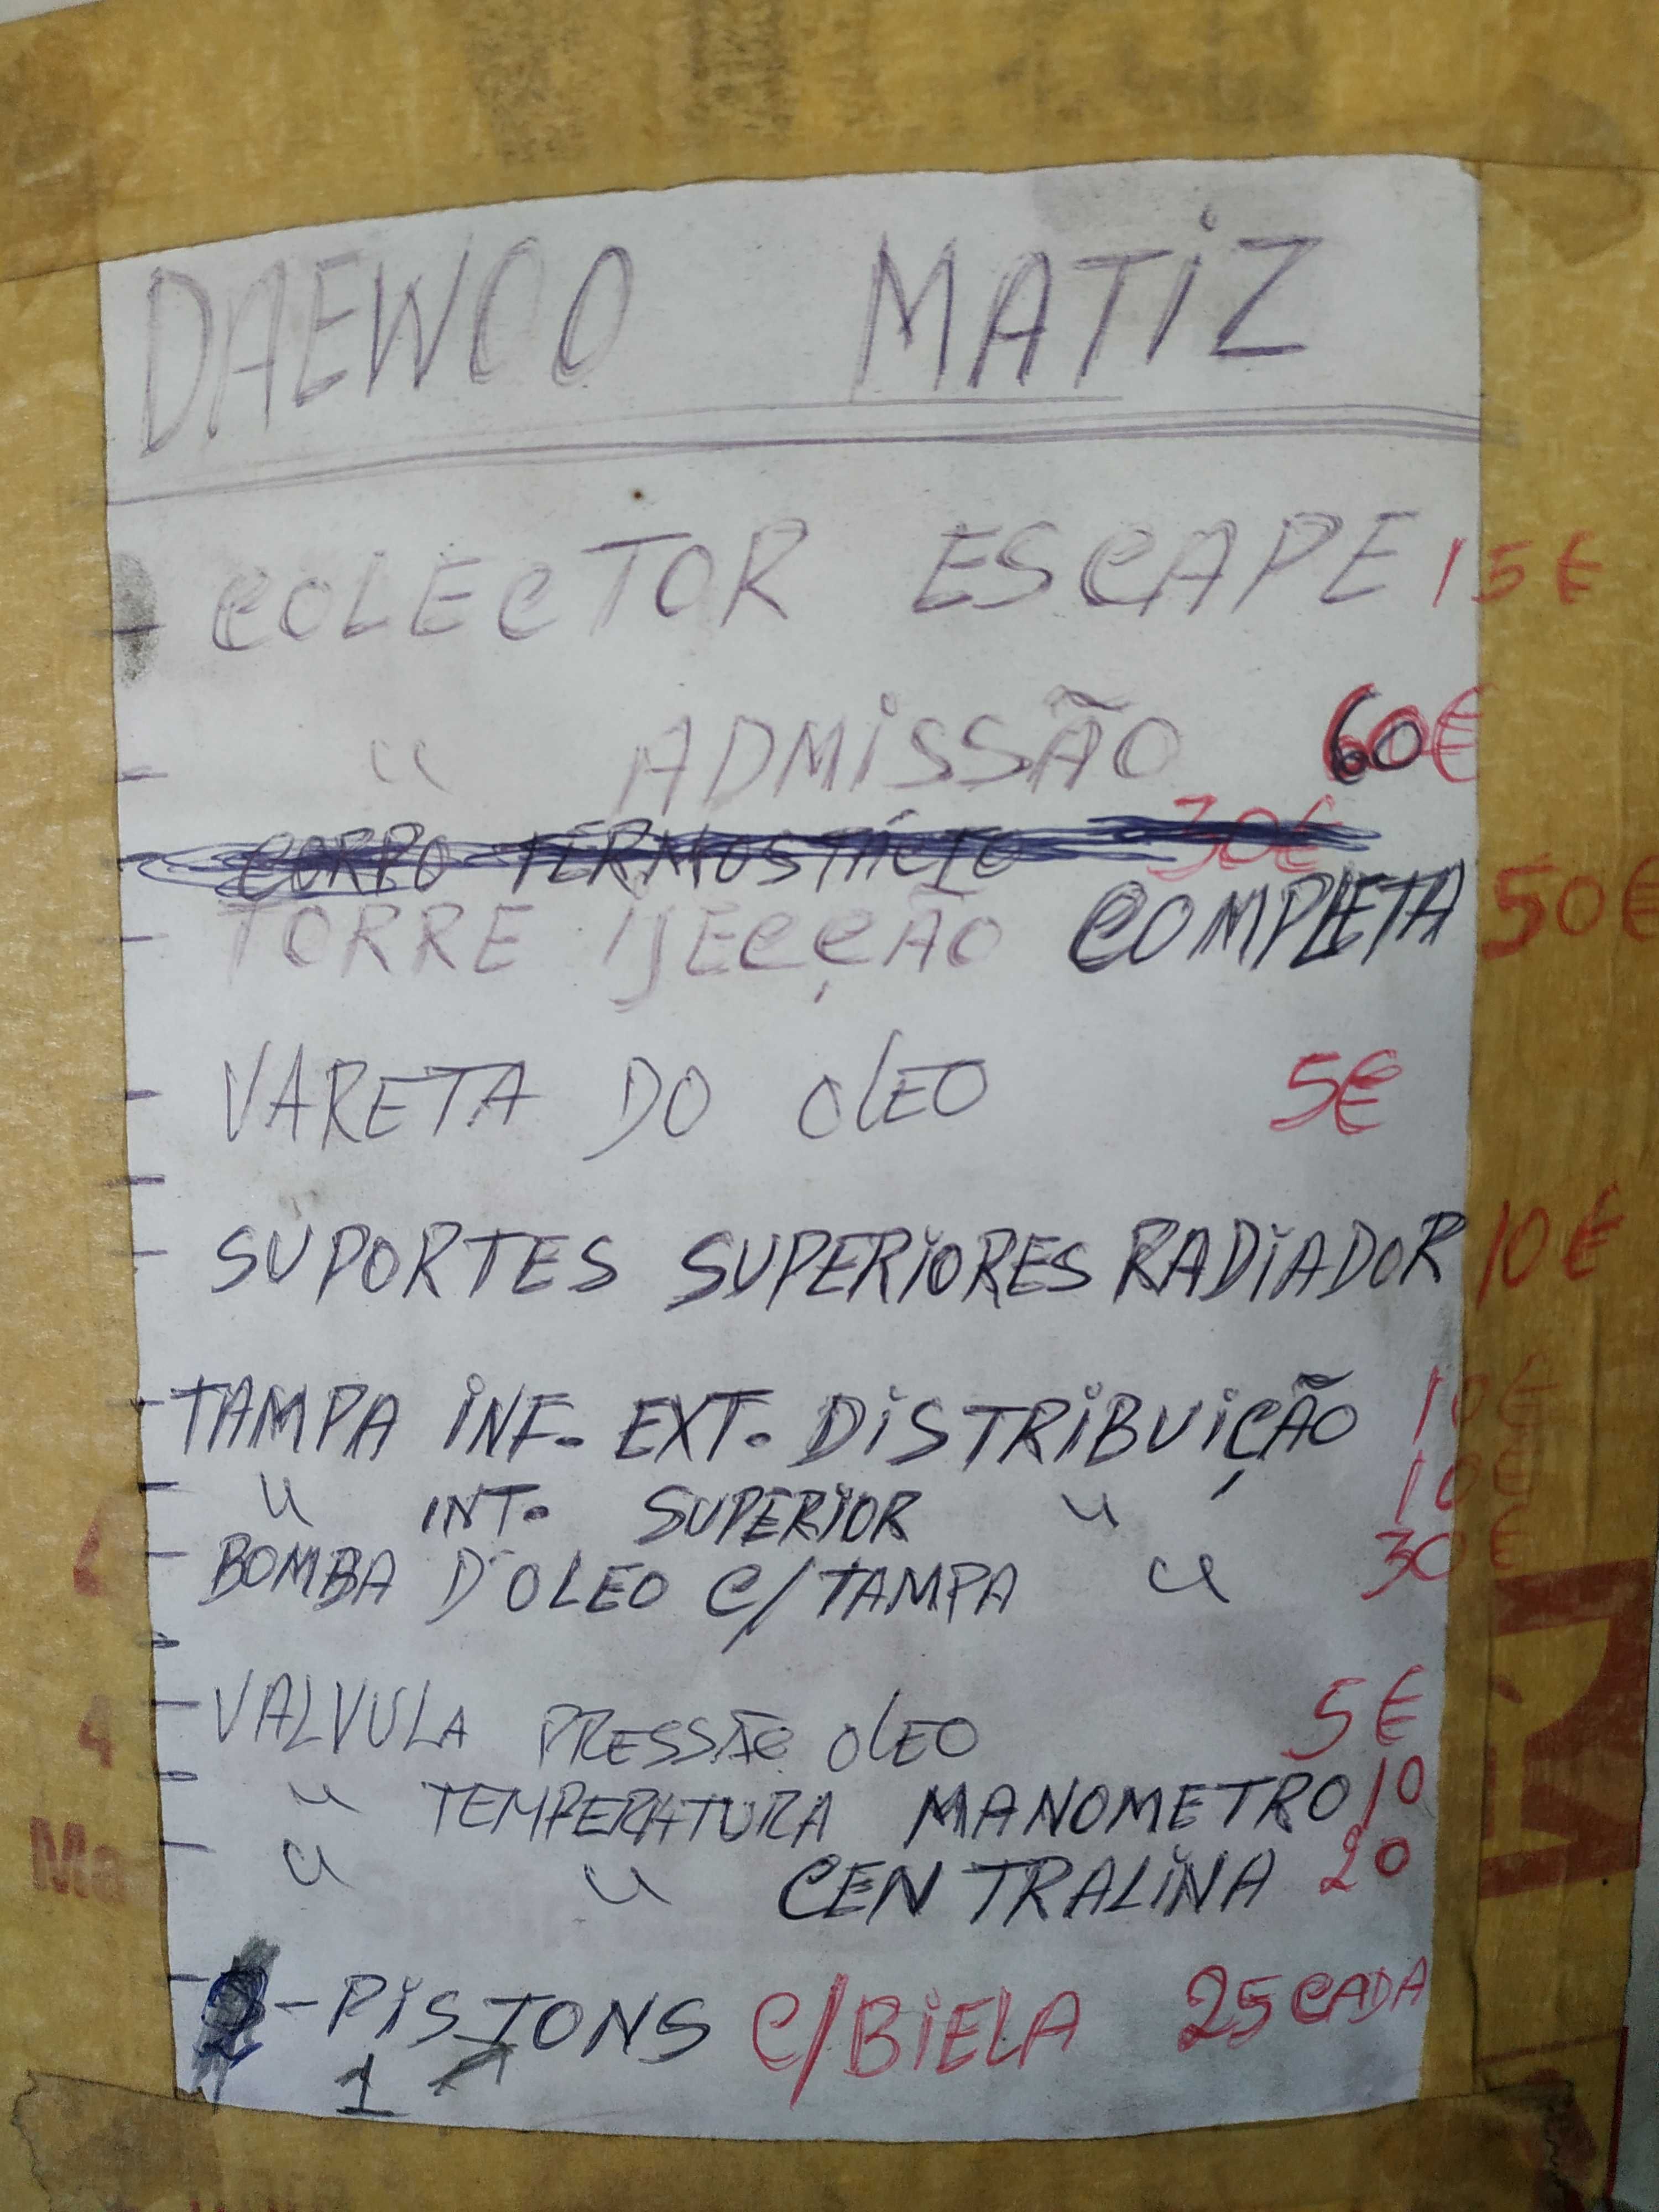 DAEWOO MATIZ
COLECTOR ESCAPE 15€
" ADMISSÃO 60€
CORPO TERMOSTÁCIO 30€
TORRE IJECÇÃO COMPLETA 50€
VARETA DO OLEO 5€
SUPORTES SUPERIORES RADIADOR 10€
TAMPA INF. EXT. DISTRIBUIÇÃO 10€
" INT. SUPERIOR " 10€
BOMBA D'OLEO C/TAMPA " 30€
VALVULA PRESSÃO OLEO 5€
" TEMPERATURA MANOMETRO 10
" " CENTRALINA 20
2-PISTONS C/BIELA 25 CADA
1
4
Ma